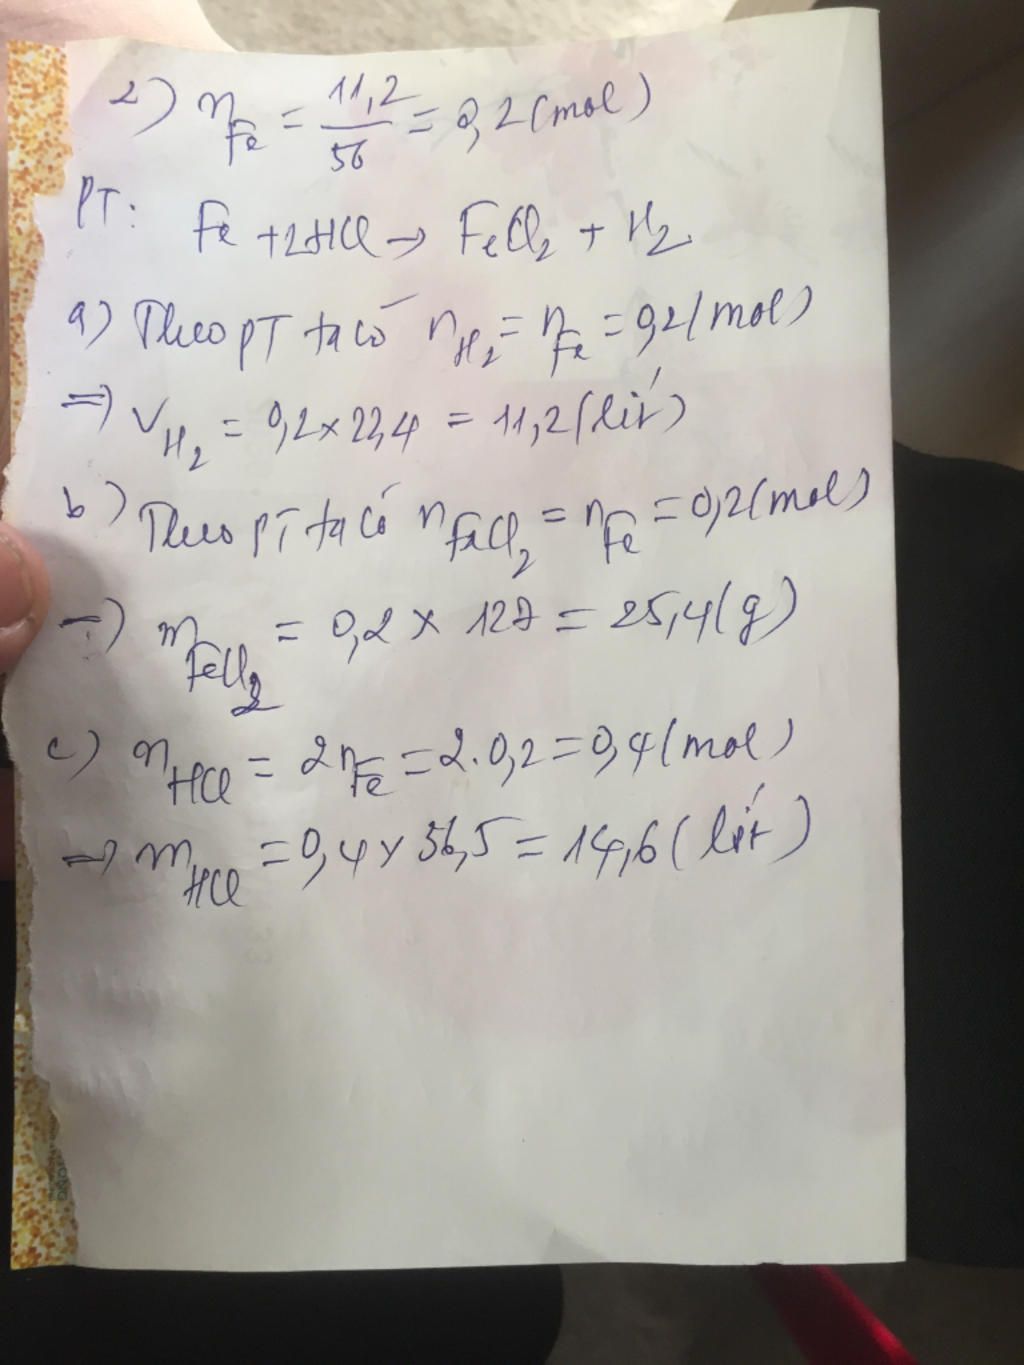 2) n Fe = 11,2/56 = 0,2 (mol)
PT:
Fe + 2HCl → FeCl2 + H2
a) Theo PT ta có n H2 = n Fe = 0,2 (mol)
=> V H2 = 0,2 x 22,4 = 11,2 (lít)
b) Theo PT ta có n FeCl2 = n Fe = 0,2 (mol)
=> m FeCl2 = 0,2 x 127 = 25,4 (g)
c) n HCl = 2n Fe = 2.0,2 = 0,4 (mol)
=> m HCl = 0,4 x 36,5 = 14,6 (lít)